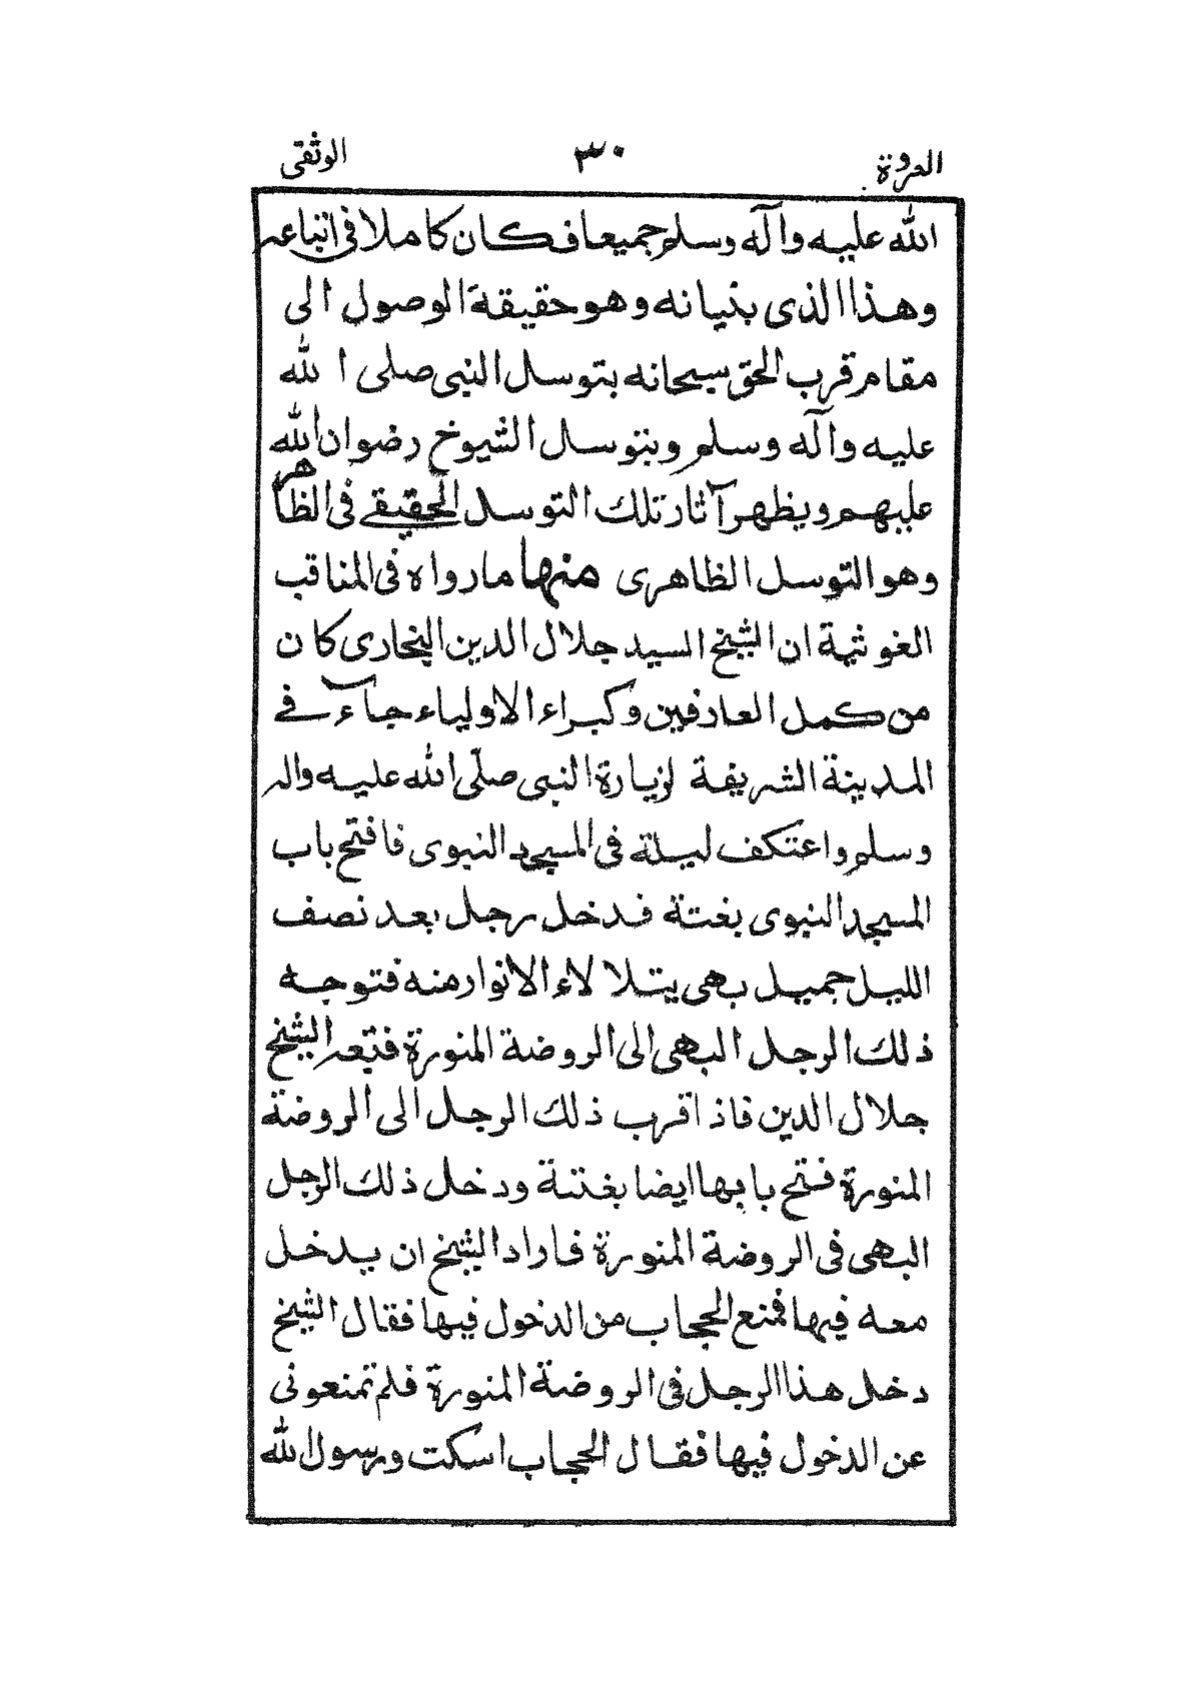 العروة ٣٠ الوثقى
الله عليه وآله وسلم جميعا فكان كاملا فى اتباعه
وهذا الذى بنيانه وهو حقيقة الوصول الى
مقام قرب الحق سبحانه بتوسل النبى صلى الله
عليه وآله وسلم وبتوسل الشيوخ رضوان الله
عليهم ويظهر آثار تلك التوسل الحقيقے فى الظاهر
وهو التوسل الظاهرى منها ما رواه فى المناقب
الغوثية ان الشيخ السيد جلال الدين البخارى كان
من كمل العارفين وكبراء الاولياء جاء فے
المدينة الشريفة لزيارة النبى صلّى الله عليه واله
وسلم واعتكف ليلة فى المسجد النبوى فافتح باب
المسجد النبوى بغتة فدخل رجل بعد نصف
الليل جميل بهى يتلالاء الانوار منه فتوجه
ذلك الرجل البهى الى الروضة المنورة فتبعه الشيخ
جلال الدين فاذا قرب ذلك الرجل الى الروضة
المنورة فتح بابها ايضا بغتة ودخل ذلك الرجل
البهى فى الروضة المنورة فاراد الشيخ ان يدخل
معه فيها فمنع الحجاب من الدخول فيها فقال الشيخ
دخل هذا الرجل فى الروضة المنورة فلم تمنعونى
عن الدخول فيها فقال الحجاب اسكت ورسول الله